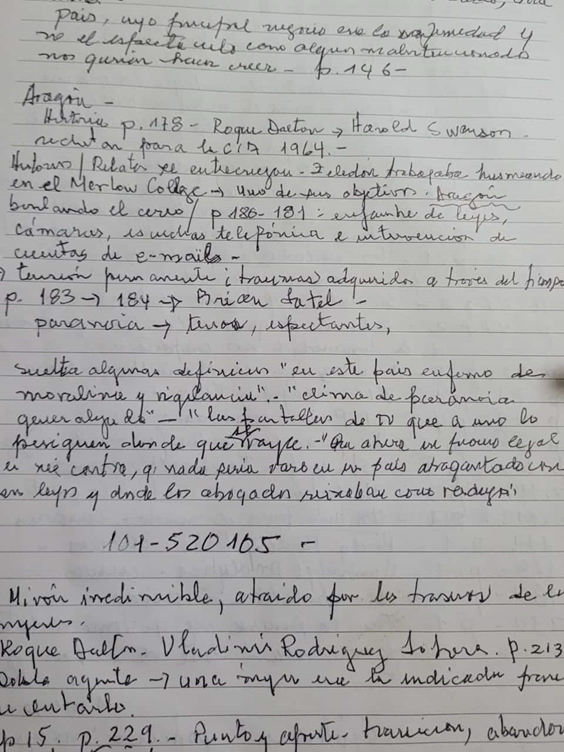 país, cuyo principal negocio era la enfermedad y
no el espectáculo como algun malintencionado
nos querían hacer creer - p. 146 -
Aragón -
Historia p. 178 - Roque Dalton → Harold Swanson -
reclutan para la CIA 1964. -
Relatos se entrecruzan - Zeledón trabajaba husmeando
en el Merlow College → uno de sus objetivos: Aragón
burlando el cerco / p 180-181: enjambre de leyes,
cámaras, escuchas telefónica e intervención de
cuentas de e-mails -
→ tensión permanente ¡traumas adquiridos a través del tiempo
p. 183 → 184 →
paranoia → tensos, expectantes,
suelta algunas "en este país enfermo de
moralina y vigilancia" - "clima de paranoia
" - "las pantallas de TV que a uno lo
persiguen donde que vaya. - "Que ahora un proceso legal
en mi contra, q. nada sería raro en un país atragantado con
leyes y donde los abogados
101-520105 -
Mirón irredimible, atraído por los traseros de las
mujeres.
Roque Dalton - Vladimir Rodríguez p. 213
Doble agente → una mujer era la indicada para
p 15. p. 229. - Punto y aparte - transición,